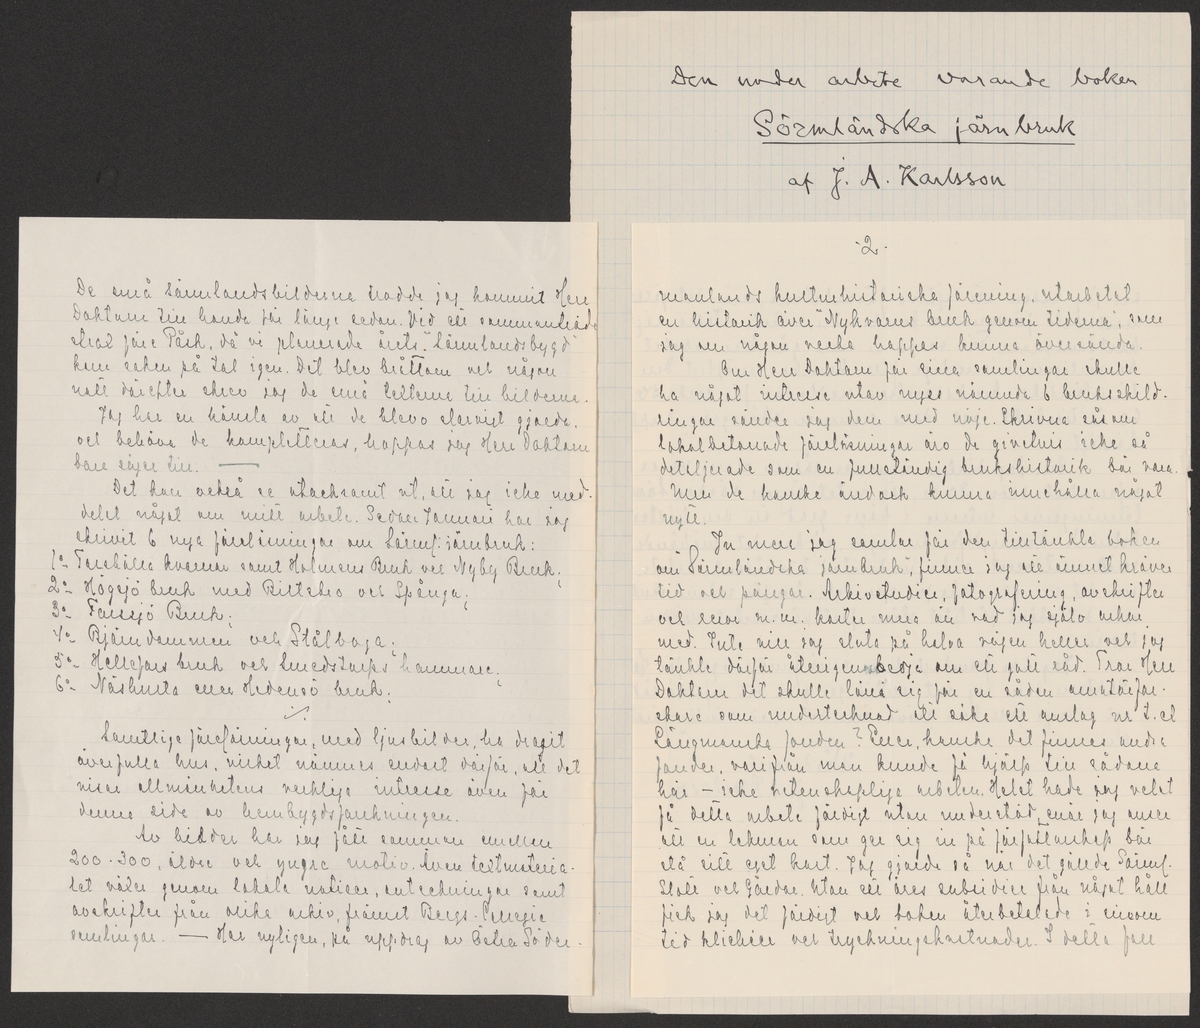 Den under arbete varande boken
Sörmländska järnbruk
af J. A. Karlsson
De små Sörmlandsbilderna trodde jag kommit Herr
Doktorn till handa för länge sedan. Vid ett sammanträde
strax före Påsk, då vi planerade årets "Sörmlandsbygd"
kom saken på tal igen. Det blev bråttom och någon
natt därefter skrev jag de små texterna till bilderna.
Jag har en känsla av att de blevo slarvigt gjorda,
och behöva de kompletteras, hoppas jag Herr Doktorn
bara säger till. —
Det kan också se otacksamt ut, att jag icke med-
delat något om mitt arbete. Sedan Januari har jag
skrivit 6 nya föreläsningar om Sörml. järnbruk:
1o Torshälla kvarnar samt Holmens Bruk och Nyby Bruk;
2o Högsjö bruk med Brittebro och Spånga;
3o Forssjö Bruk;
4o Björndammen och Stålboga;
5o Hällefors bruk och Smedstorps hammare;
6o Näshulta eller Hedensö bruk;
./.
Samtliga föreläsningar, med ljusbilder, ha dragit
överfulla hus, vilket nämnes endast därför, att det
visar allmänhetens verkliga intresse även för
denna sida av hembygdsforskningen.
Av bilder har jag fått samman emellan
200-300, äldre och yngre motiv. Även textmateria-
let växer genom lokala notiser, anteckningar samt
avskrifter från olika arkiv, främst Bergs-Collegii
samlingar. — Har nyligen, på uppdrag av Östra Söder-
-2-
manlands kulturhistoriska förening, utarbetat
en historik över "Nykvarns bruk genom tiderna", som
jag om någon vecka hoppas kunna översända.
Om Herr Doktorn för sina samlingar skulle
ha något intresse utav nyss nämnda 6 bruksskild-
ringar sänder jag dem med nöje. Skrivna såsom
lokalbetonade föreläsningar äro de givetvis icke så
detaljerade som en fullständig brukshistorik bör vara.
Men de kanske ändock kunna innehålla något
nytt.
Ju mer jag samlar för den tilltänkta boken
om "Sörmländska järnbruk", finner jag att ämnet kräver
tid och pengar. Arkivstudier, fotografering, avskrifter
och resor m.m. kostar mera än vad jag själv orkar
med. Inte vill jag sluta på halva vägen heller och jag
tänkte därför återigen bedja om ett gott råd. Tror Herr
Doktorn det skulle löna sig för en sådan amatörfor-
skare som undertecknad att söka ett anslag ur t.ex
Längmanska fonden? Eller, kanske det finnes andra
fonder, varifrån man kunde få hjälp till sådana
här – icke vetenskapliga arbeten. Helst hade jag velat
få detta arbete färdigt utan understöd, enär jag anser
att en lekman som ger sig in på författarskap bör
stå sitt eget kast. Jag gjorde så när det gällde Sörml.
Slott och Gårdar. Utan ett öres subsidier från något håll
fick jag det färdigt och boken återbetalade i sinom
tid klichéer och tryckningskostnader. I detta fall